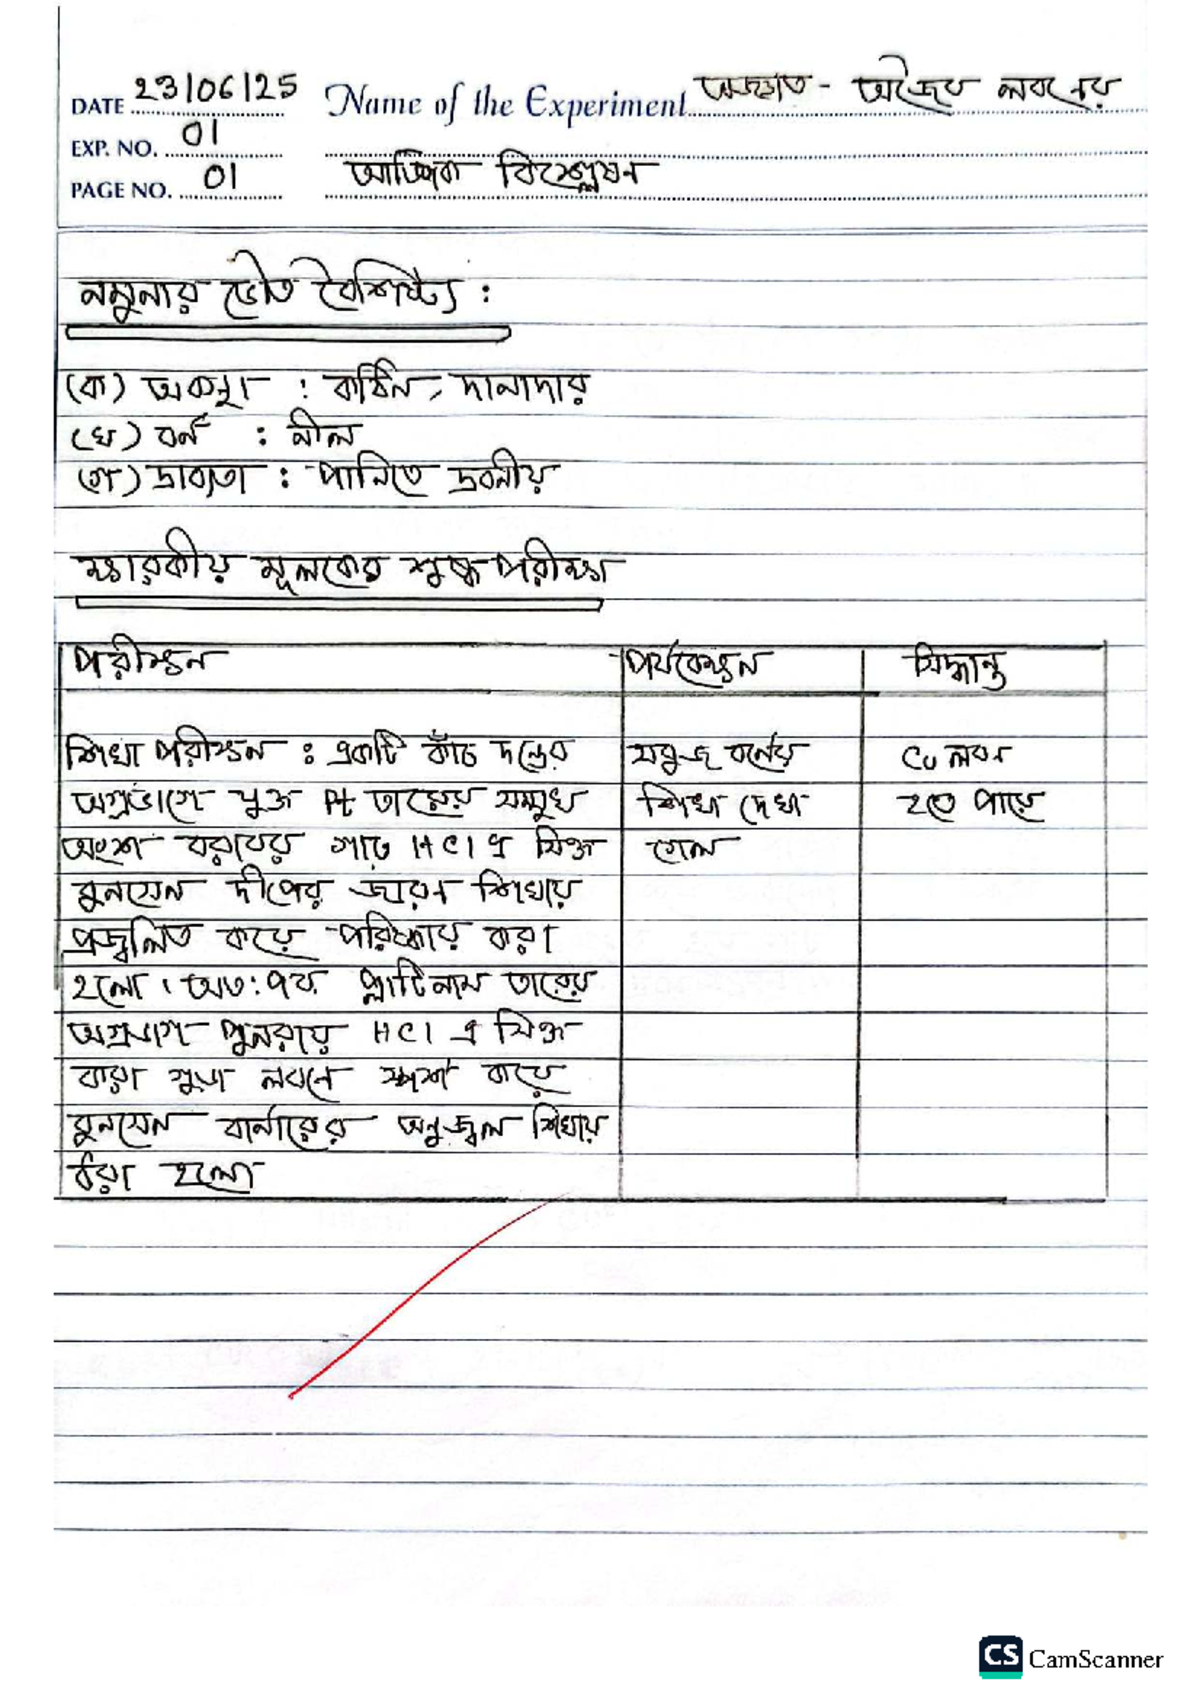 DATE 23/06/25 Name of the Experiment অজ্ঞাত - অজৈব লবনের
EXP. NO. 01
PAGE NO. 01 আঙ্গিক বিশ্লেষন
নমুনার ভৌত বৈশিষ্ট্য :
(ক) অবস্থা : কঠিন, দানাদার
(খ) বর্ন : নীল
(গ) দ্রাব্যতা : পানিতে দ্রবনীয়
ক্ষারকীয় মূলকের শুষ্ক পরীক্ষা
পরীক্ষন পর্যবেক্ষন সিদ্ধান্ত
শিখা পরীক্ষন : একটি কাঁচ দন্ডের সবুজ বর্নের Cu লবন
অগ্রভাগে যুক্ত Pt তারের সম্মুখ শিখা দেখা হতে পারে
অংশ বরাবর গাঢ় HCl এ সিক্ত গেল
বুনসেন দীপের জারণ শিখায়
প্রজ্বলিত করে পরিষ্কার করা
হলো । অত:পর প্লাটিনাম তারের
অগ্রভাগ পুনরায় HCl এ সিক্ত
করা গুড়া লবনে স্পর্শ করে
বুনসেন বার্নারের অনুজ্বল শিখায়
ধরা হলো
CS CamScanner